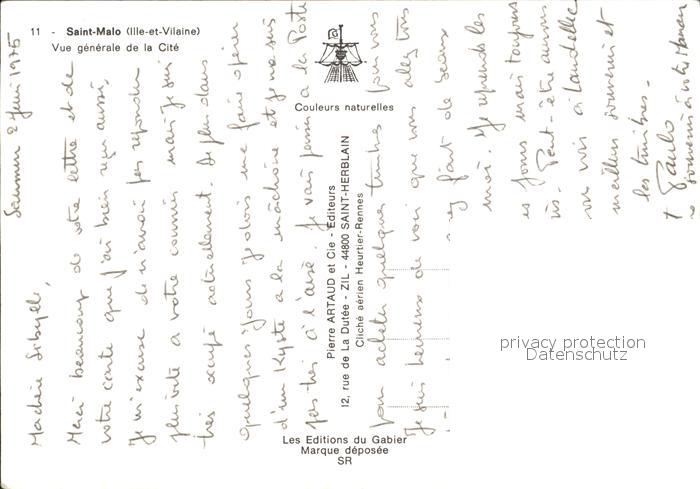 11 - Saint-Malo (Ille-et-Vilaine)
Vue générale de la Cité
Couleurs naturelles
Pierre ARTAUD et Cie - Editeurs
12, rue de La Dutée - ZIL - 44800 SAINT-HERBLAIN
Cliché aérien Heurtier-Rennes
Les Editions du Gabier
Marque déposée
SR
2 Juin 1975
Ma chère Sibylle,
Merci beaucoup de votre lettre et de
votre carte que j'ai bien reçu aussi,
Je m'excuse de n'avoir pas répondu
plus vite a votre courrier mais je suis
très occupé actuellement. De plus dans
quelques jours je dois me faire opérer
d'un Kyste a la mâchoire et je ne suis
pas très à l'aise. Je vais passer a la Poste
pour acheter quelques timbres pour vous
Je suis heureux de voir que vous allez très
de beaux
moi. Je reprends les
es jours mais toujours
Peut-être aurons
à Landellec
meilleur souvenir et
les timbres.
Paulo
privacy protection
Datenschutz